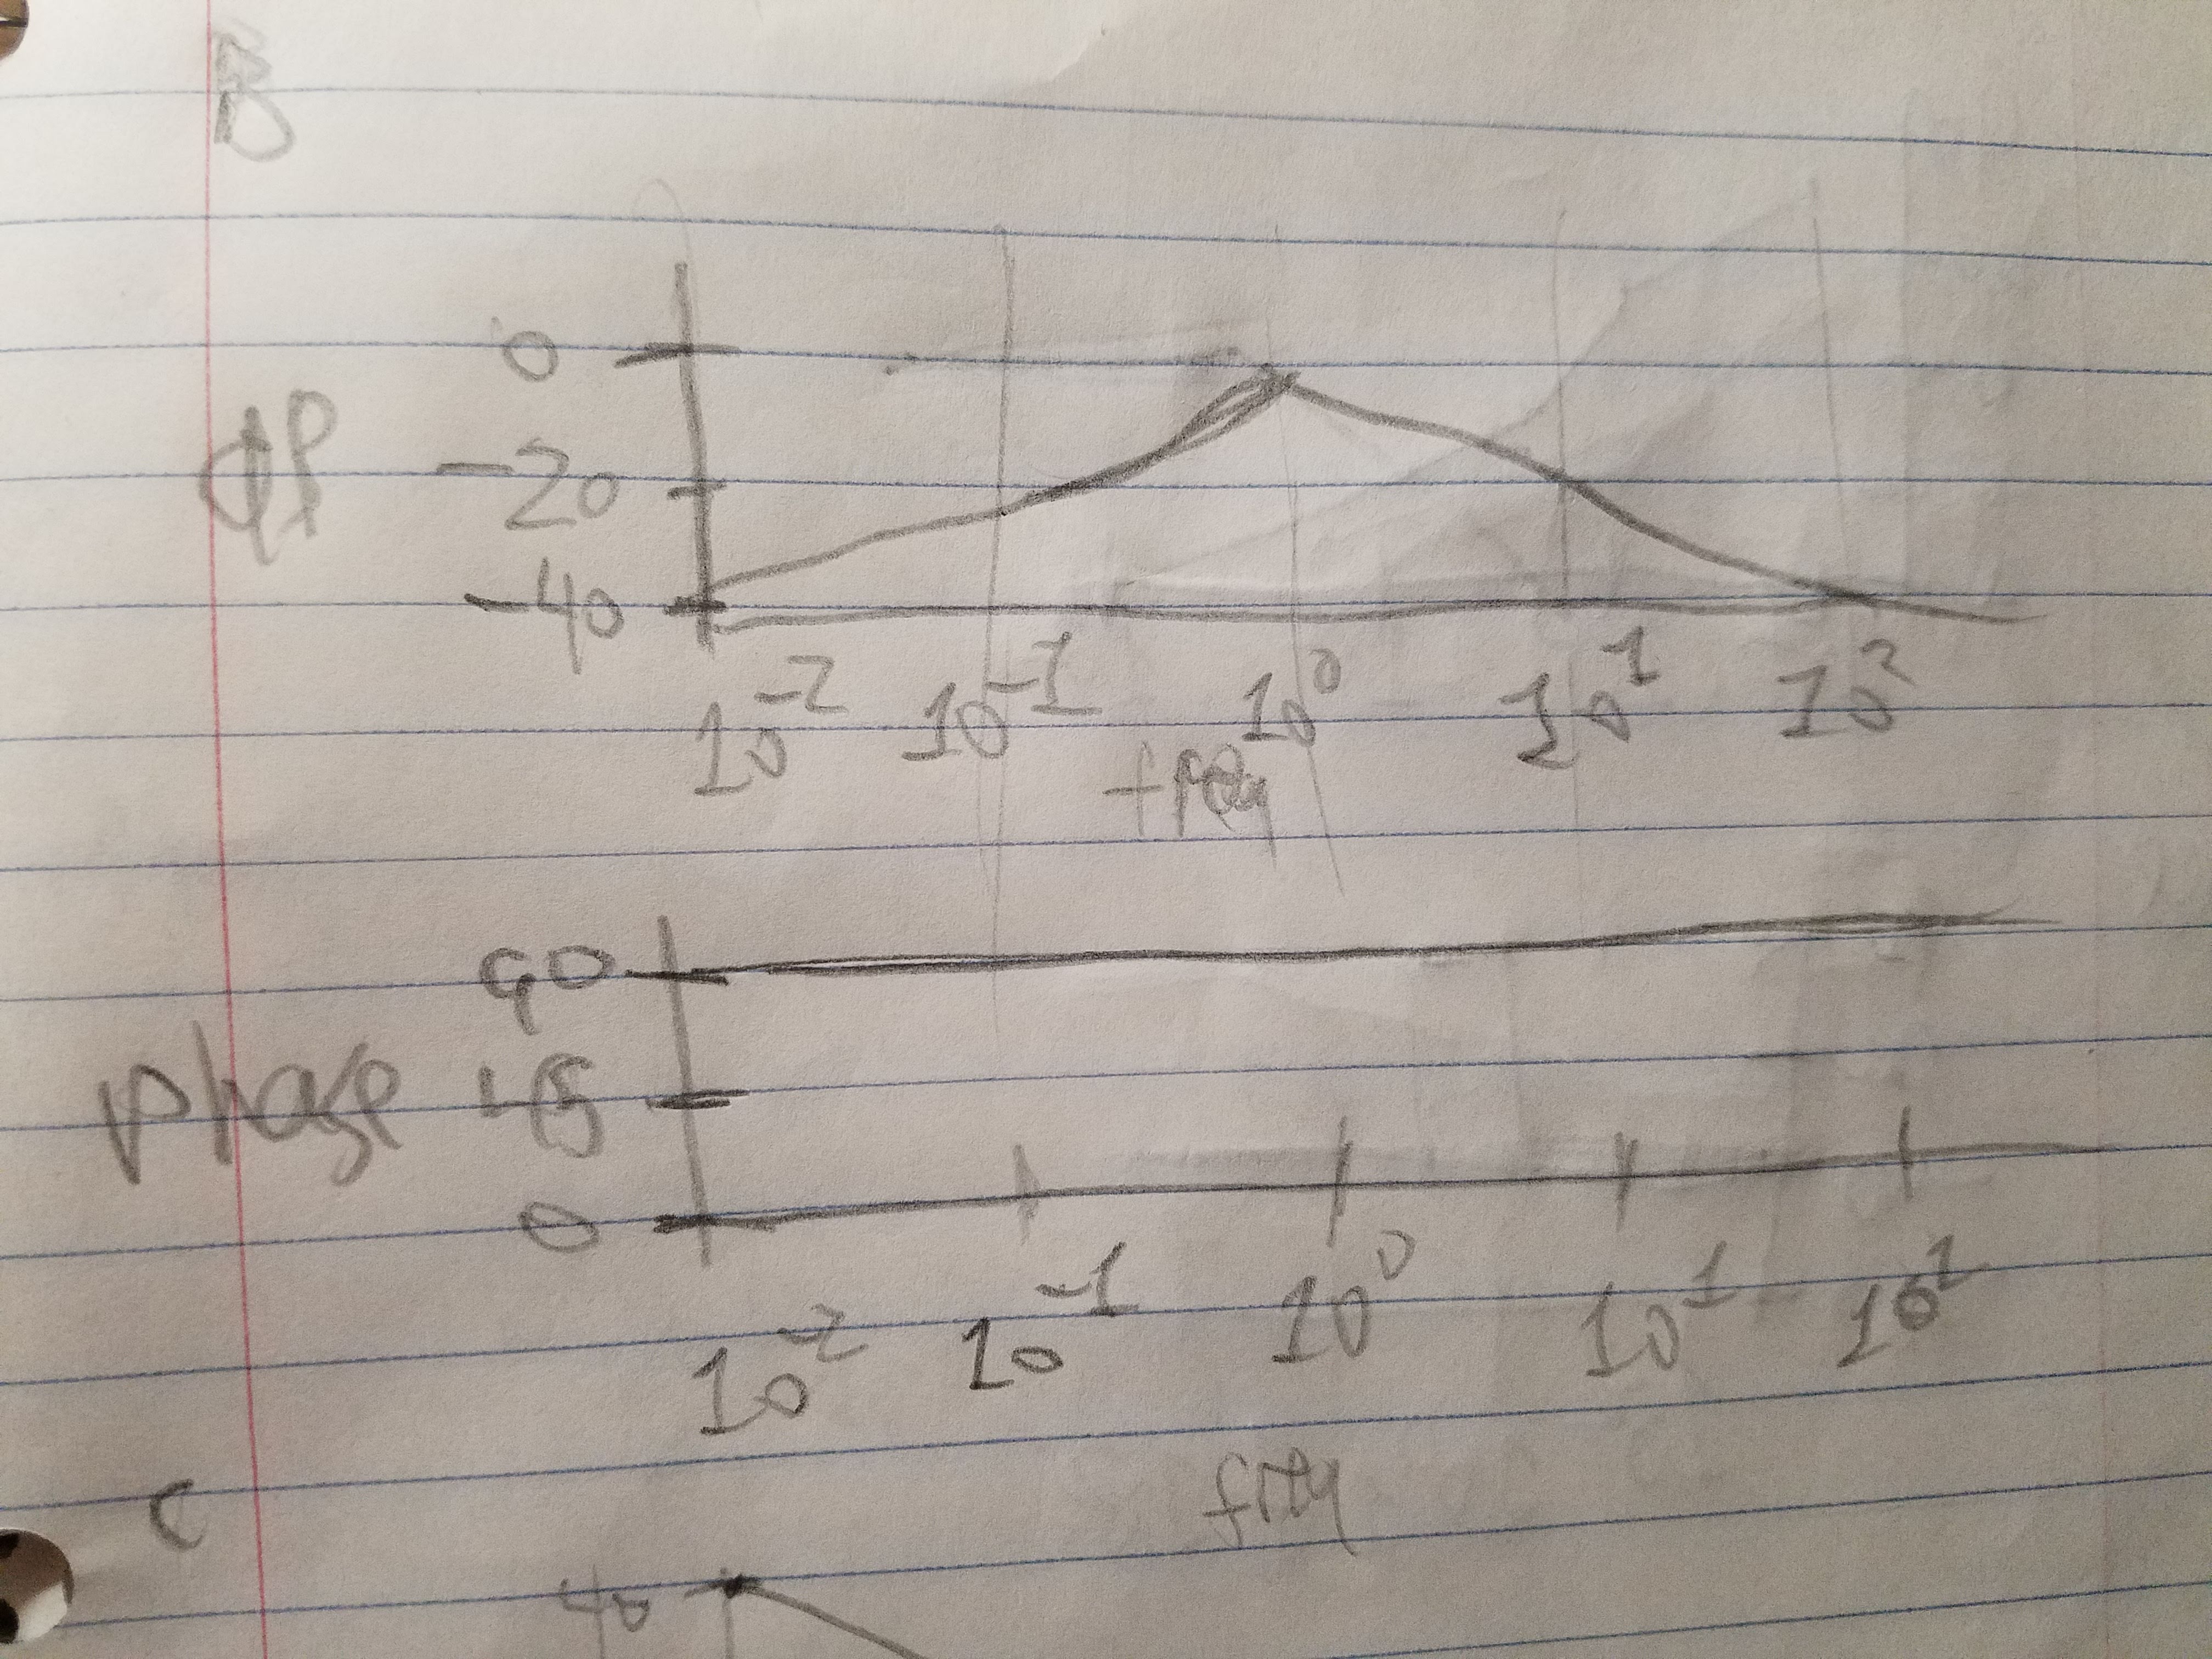 dB
0
-20
-40
10^-2 10^-1 10^0 10^1 10^2
phase
90
45
0
10^-2 10^-1 10^0 10^1 10^2
freq
C